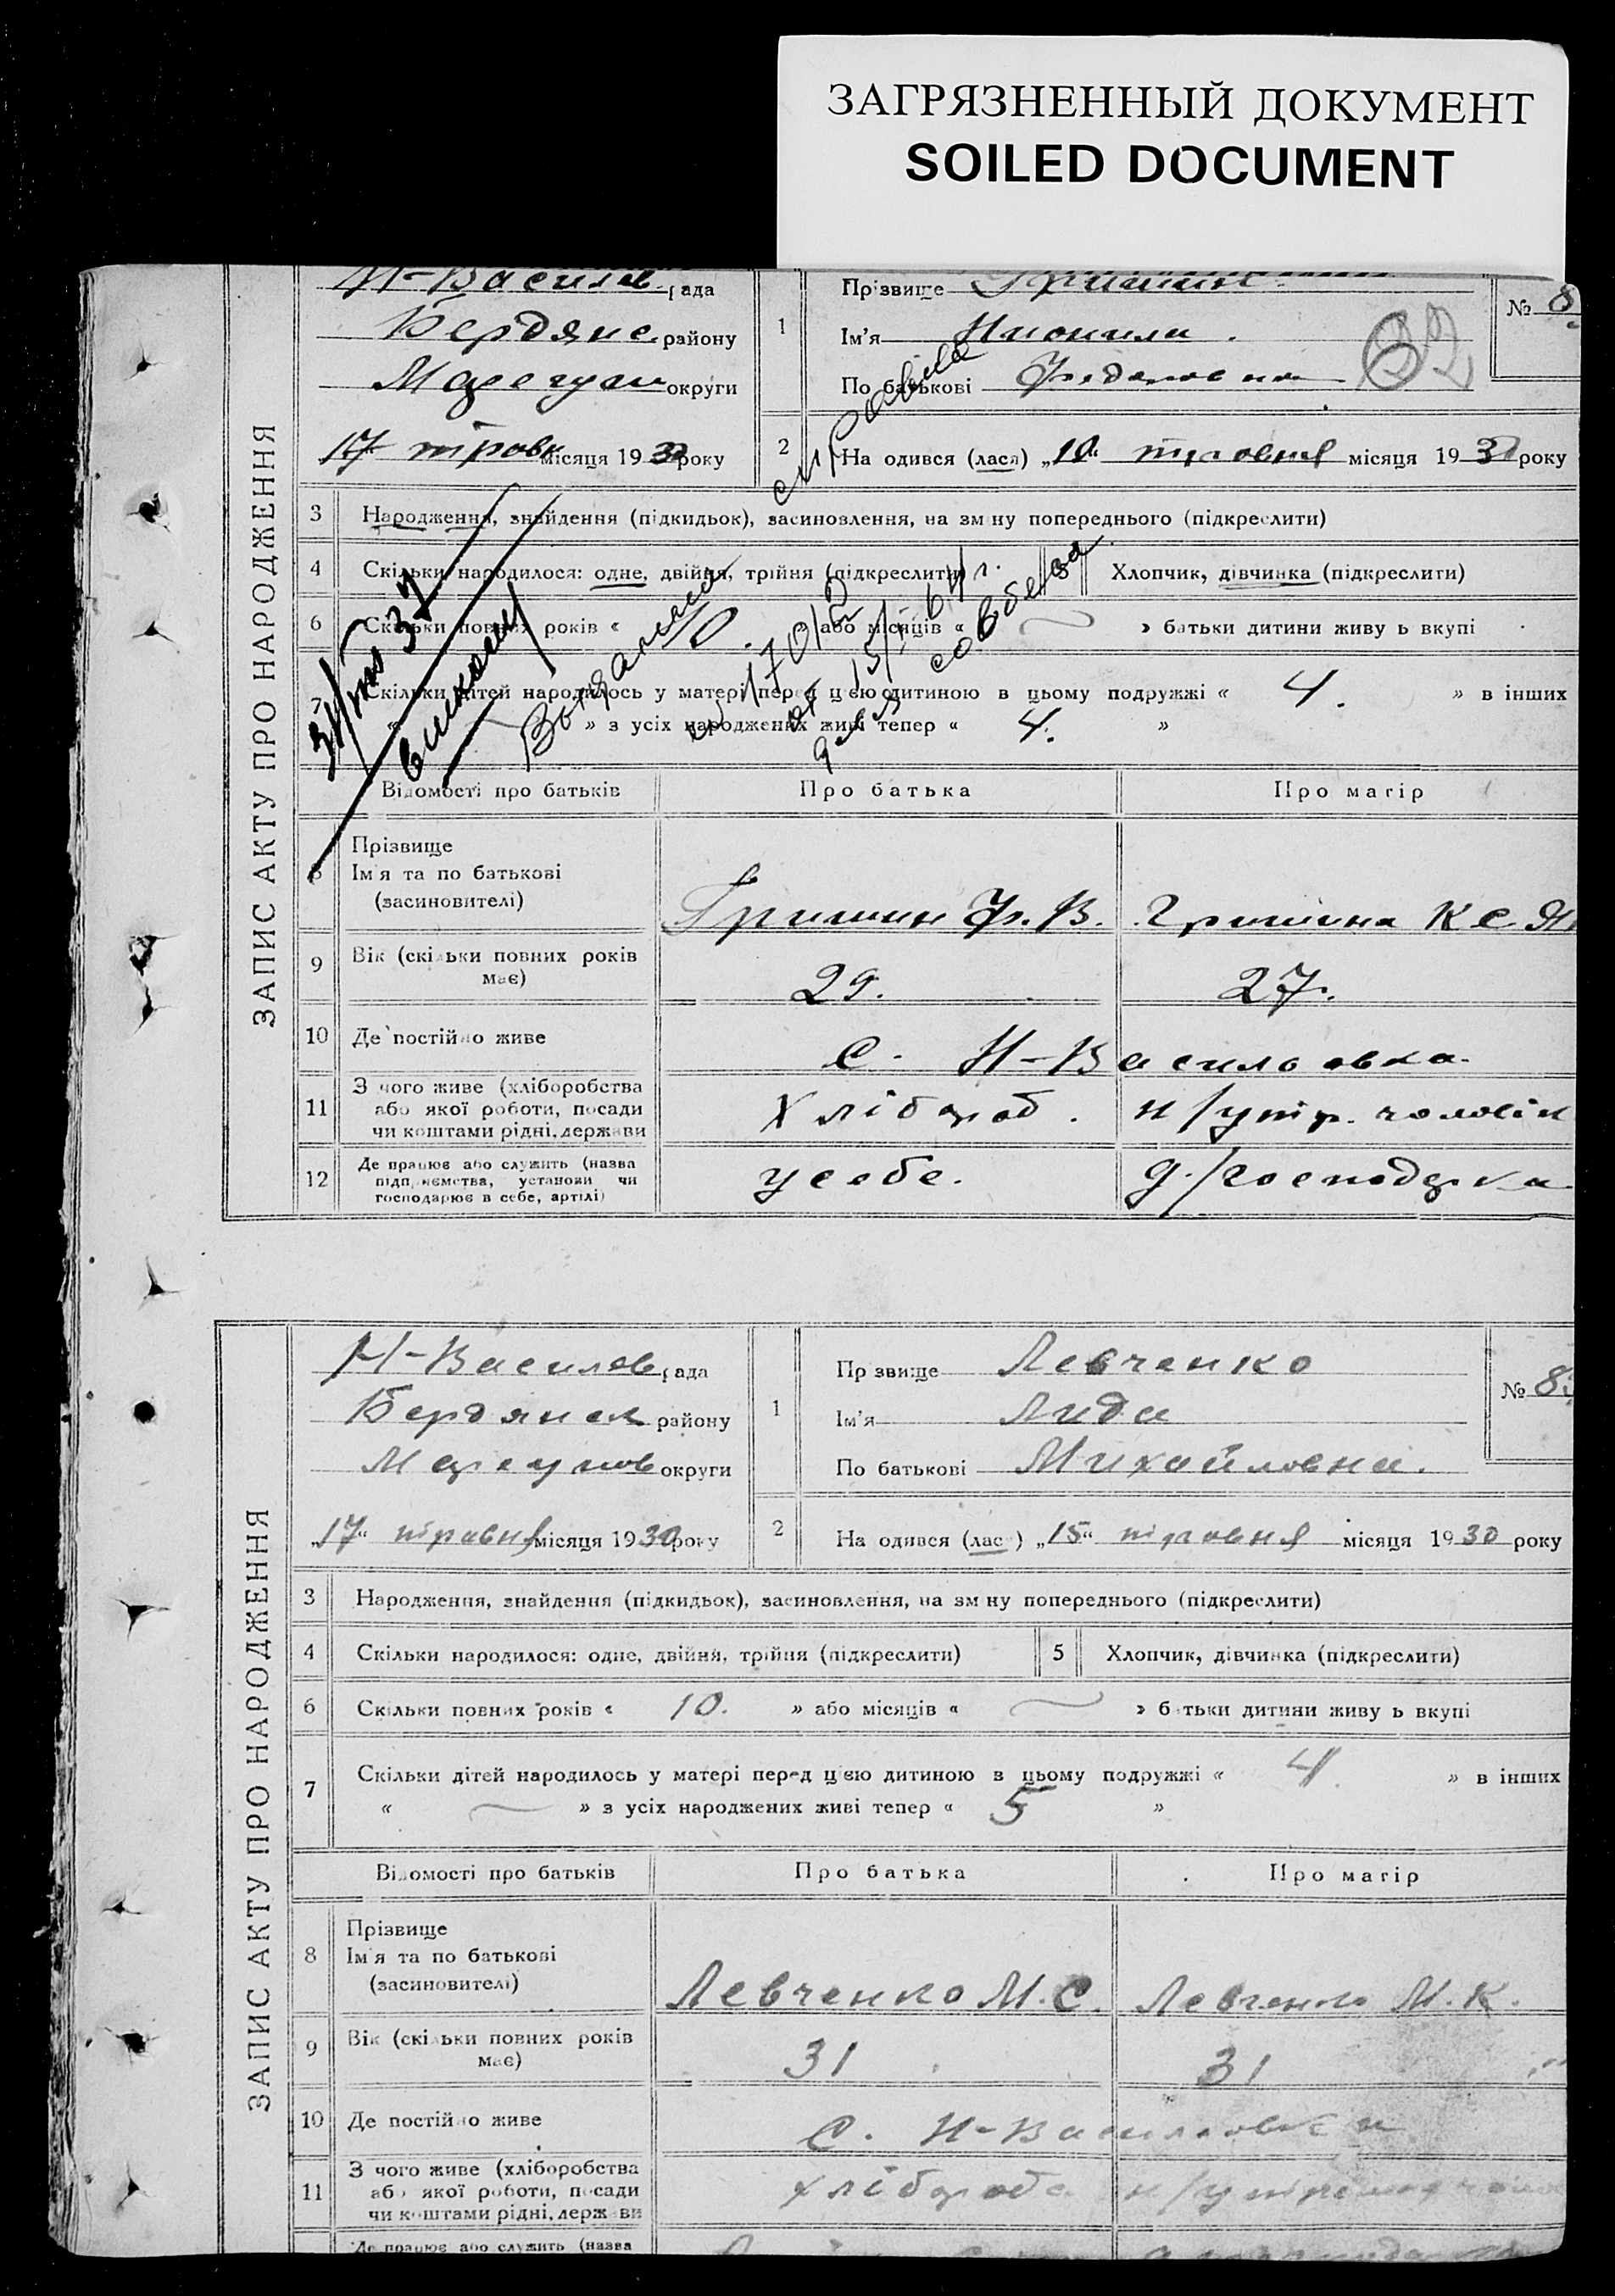 ЗАГРЯЗНЕННЫЙ ДОКУМЕНТ
SOILED DOCUMENT
ЗАПИС АКТУ ПРО НАРОДЖЕННЯ
Н-Васил рада
Бердянс. району
округи
17 травн місяця 1930 року
1
Прізвище Гришин
Ім'я
По батькові
№ 8
2 На одився (лася) „ травня місяця 1930 року
3 Народження, знайдення (підкидьок), засиновлення, на зм ну попереднього (підкреслити)
4 Скільки народилося: одне, двійня, трійня (підкреслити) 5 Хлопчик, дівчинка (підкреслити)
6 Скільки повних років « 10. » або місяців « » батьки дитини живу ь вкупі
7 Скільки дітей народилось у матері перед цією дитиною в цьому подружжі « 4. » в інших
« » з усіх народжених живі тепер « 4. »
справила
Выдана
совбеза
Відомості про батьків Про батька Про матір
8 Прізвище
Ім'я та по батькові
(засиновителі)
Гришин Ф. В. Гришина К
9 Вік (скільки повних років
має)
29. 27.
10 Де постійно живе с. Н-Васильовка
11 З чого живе (хліборобства
або якої роботи, посади
чи коштами рідні, держави
Хлібороб. н/утр. чоловік
12 Де працює або служить (назва
підприємства, установи чи
господарює в себе, артілі)
у себе. д./господарка
ЗАПИС АКТУ ПРО НАРОДЖЕННЯ
Н-Васил рада
Бердянск району
округи
„17“ травня місяця 1930 року
1
Пр звище Левченко
Ім'я Лида
По батькові Михайловна.
№ 8
2 На одився (лас ) „15“ травня місяця 1930 року
3 Народження, знайдення (підкидьок), засиновлення, на зм ну попереднього (підкреслити)
4 Скільки народилося: одне, двійня, трійня (підкреслити) 5 Хлопчик, дівчинка (підкреслити)
6 Скільки повних років « 10. » або місяців « » батьки дитини живу ь вкупі
7 Скільки дітей народилось у матері перед цією дитиною в цьому подружжі « 4. » в інших
« » з усіх народжених живі тепер « 5 »
Відомості про батьків Про батька Про матір
8 Прізвище
Ім'я та по батькові
(засиновителі)
Левченко М. С. Левченко М. К.
9 Вік (скільки повних років
має)
31 31
10 Де постійно живе с. Н-Васильовка
11 З чого живе (хліборобства
або якої роботи, посади
чи коштами рідні, держави
хлібороб
Де працює або служить (назва